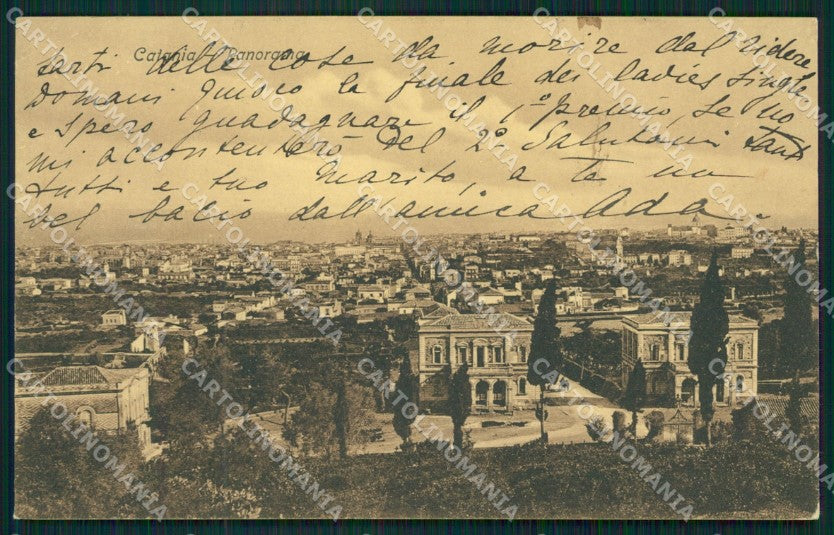 Catania - Panorama
farti delle cose da morire dal ridere
Domani giuoco la finale dei ladies single
e spero guadagnare il 1° premio se no
mi accontenterò del 2°. Salutami tanto
tutti e tuo marito, a te un
bel bacio dall'amica Ada.
CARTOLINOMANIA